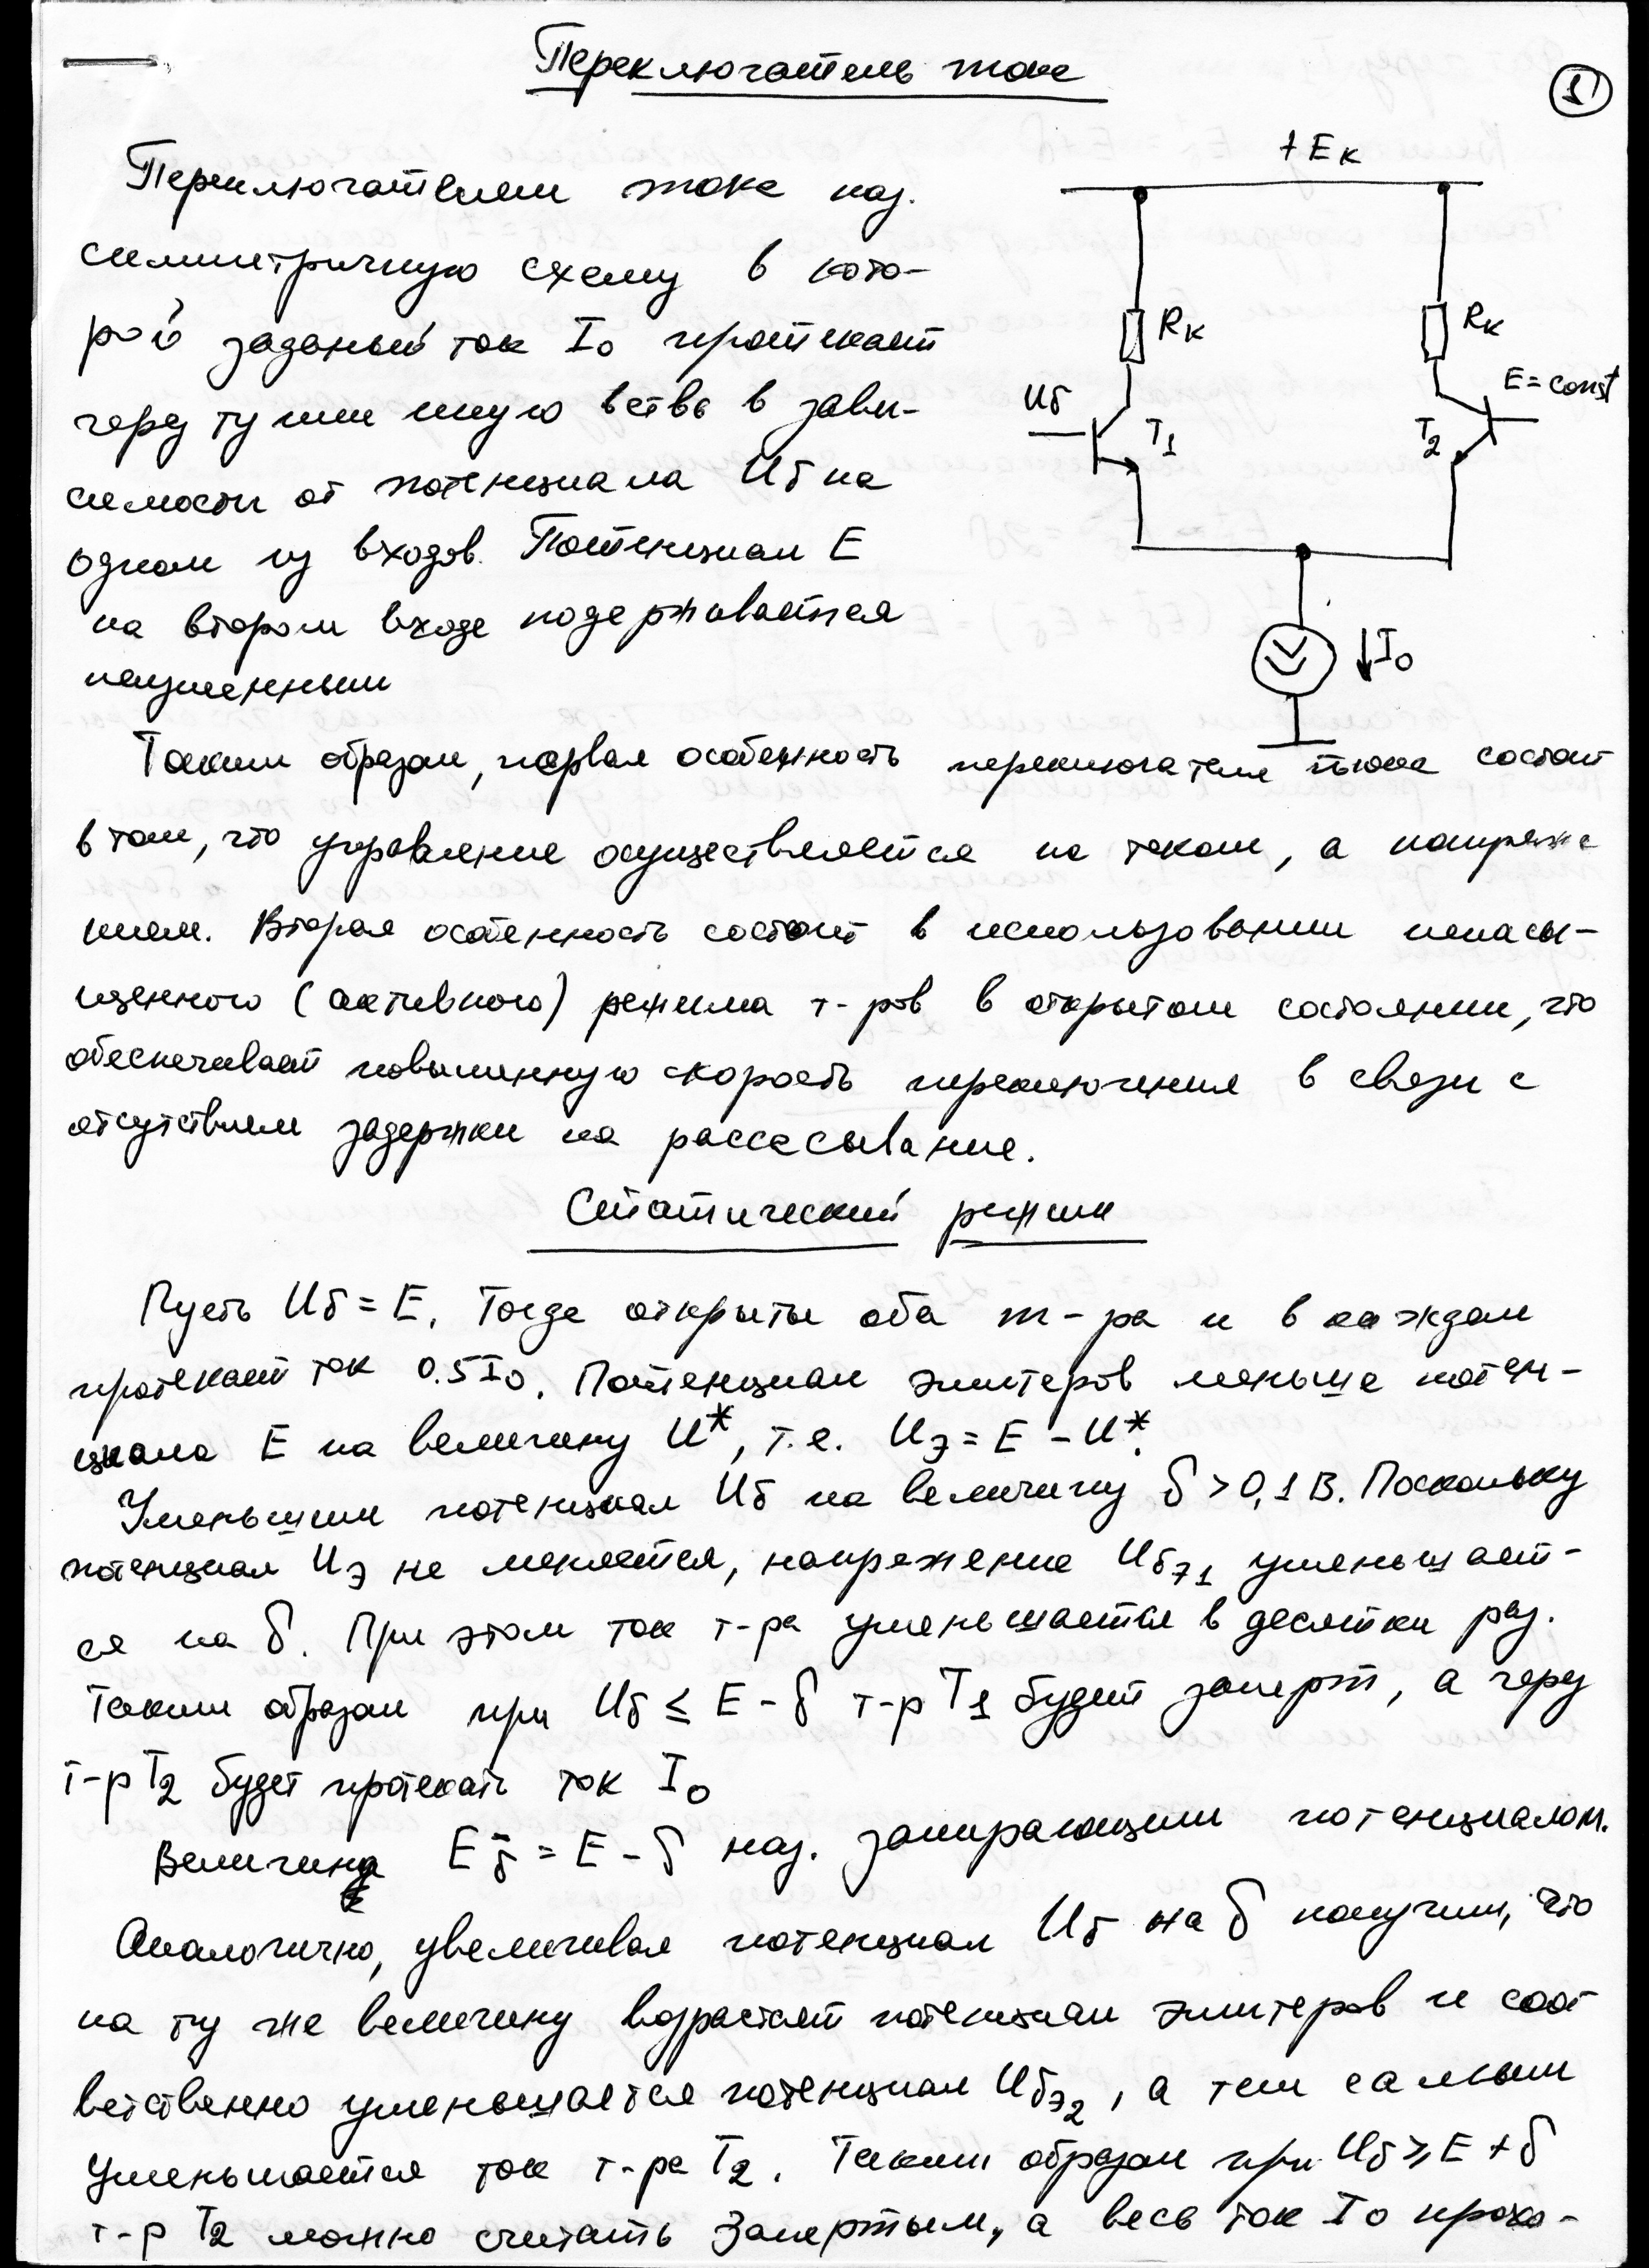 Переключатель тока
1
Переключателем тока наз.
симметричную схему в кото-
рой заданый ток I₀ протекает
через ту или иную ветвь в зави-
симости от потенциала Uб на
одном из входов. Потенциал E
на втором входе подерживается
неизменным
+Eк
Rк
Rк
E=const
Uб
T1
T2
↓I₀
Таким образом, первая особенность переключателя тока состоит
в том, что управление осуществляется не током, а напряже
нием. Вторая особенность состоит в использовании ненасы-
щенного (активного) режима т-ров в открытом состоянии, что
обеспечивает повышенную скорость переключения в связи с
отсутствием задержки на рассасывание.
Статический режим
Пусть Uб=E. Тогда открыты оба т-ра и в каждом
протекает ток 0.5I₀. Потенциал эмитеров меньше потен-
циала E на величину U*, т.е. Uэ=E-U*.
Уменьшим потенциал Uб на величину δ>0,1В. Поскольку
потенциал Uэ не меняется, напряжение Uбэ1 уменьшает-
ся на δ. При этом ток т-ра уменьшается в десятки раз.
Таким образом при Uб ≤ E-δ т-р T1 будет заперт, а через
т-р T2 будет протекать ток I₀
Величина E⁻б=E-δ наз. запирающим потенциалом.
Аналогично, увеличивая потенциал Uб на δ получим, что
на ту же величину возрастает потенциал эмитеров и соот
ветственно уменьшается потенциал Uбэ2, а тем самым
уменьшается ток т-ра T2. Таким образом при Uб≥E+δ
т-р T2 можно считать запертым, а весь ток I₀ прохо-